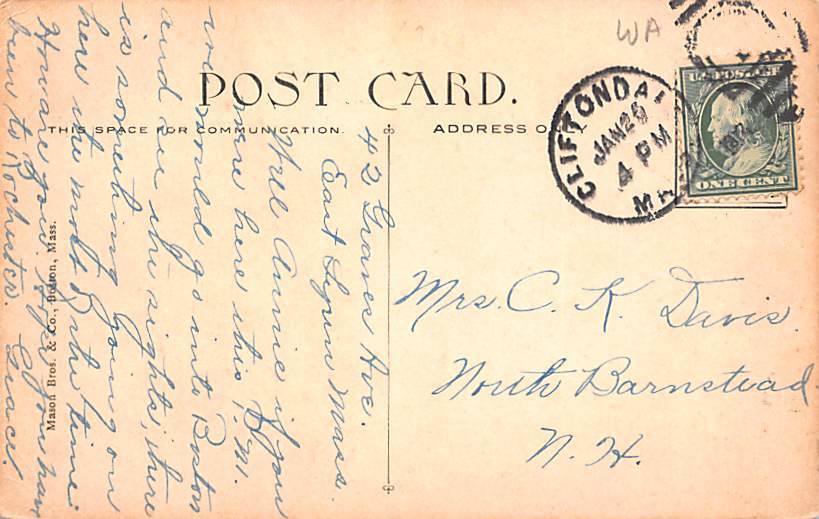 WA
POST CARD.
THIS SPACE FOR COMMUNICATION.
ADDRESS O
CLIFTONDAL
JAN 26
4 PM
MA
U.S. POSTAGE
ONE CENT
Mrs. C. K. Davis.
North Barnstead
N. H.
42 Graves Ave.
East Lynn Mass.
Well Annie if you
were here this P.M.
we would go into Boston
and see the sights, there
is something going on
here the most of the time.
How are you. Hope you have
been to Rochester. Grace.
Mason Bros. & Co., Boston, Mass.